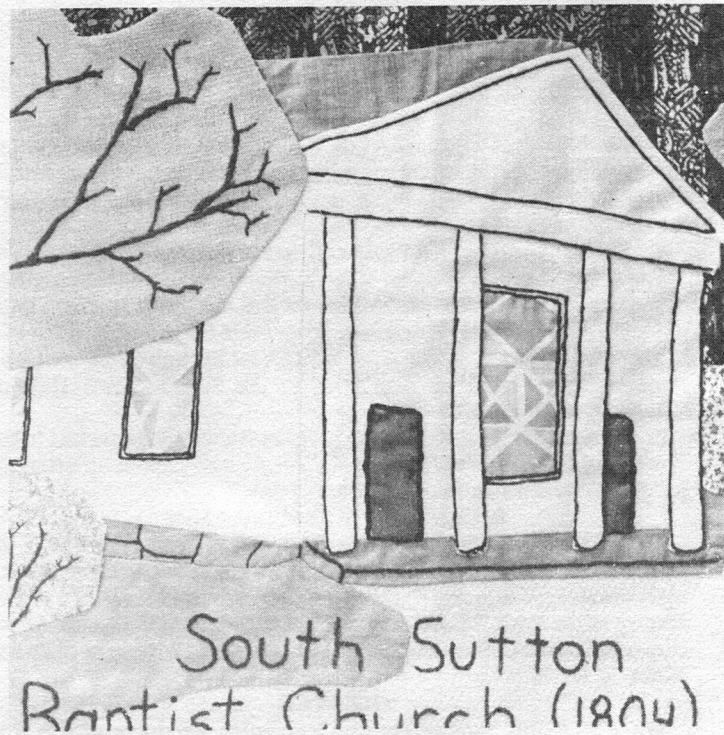 South Sutton
Baptist Church (1804)